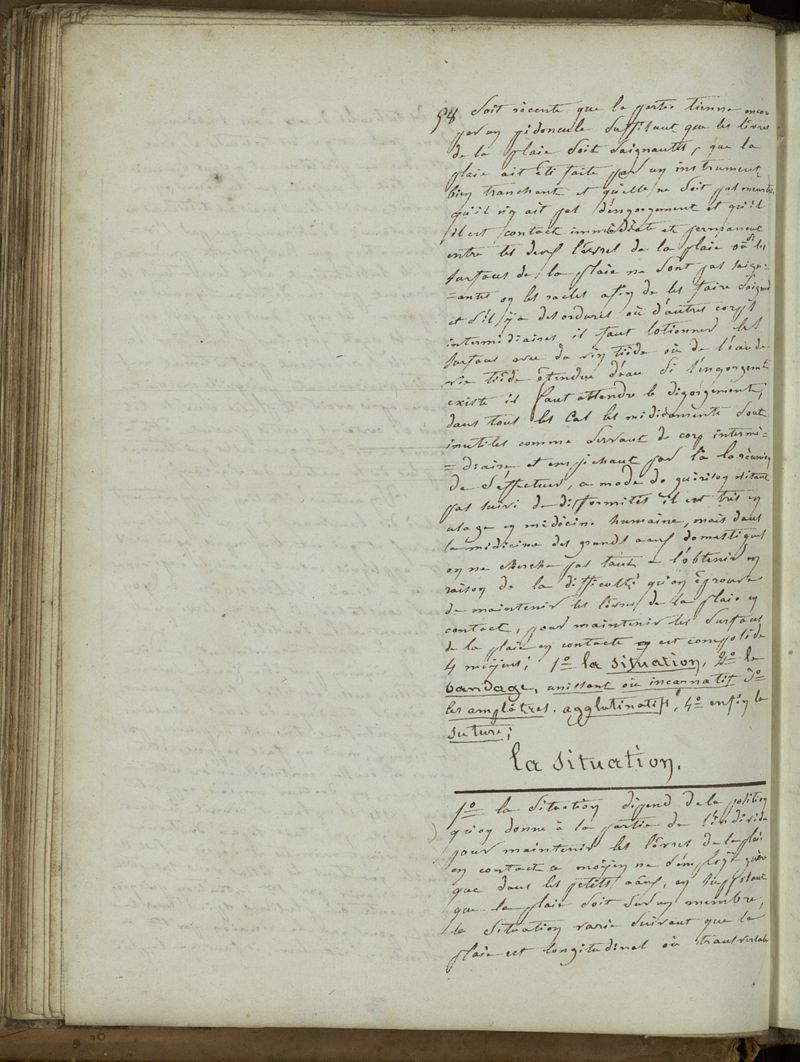 58 Soit récente que la partie tienne encor
par un pédoncule suffisant que les lèvres
de la plaie soit saignantes, que la
plaie ait été faite par un instrument
bien tranchant et qu'elle ne soit pas meurtrie
qu'il n'y ait pas d'engorgement et qu'il
il est contact immédiate et permanent
entre les deux lèvres de la plaie où si les
surfaces de la plaie ne sont pas saign=
=antes on les racles afin de les faire saigner
et s'il y a des ordures où d'autres corps
intermédiaires il faut lotionner les
surfaces avec du vin tiède où de l'eau de
vie tiède étendue d'eau si l'engorgement
existe il faut attendre le dégorgement,
dans tous les cas les médicaments sont
inutiles comme servant de corp intermé=
=diaire et empêchant par là la réunion
de s'effectuer, ce mode de guérison n'étant
pas suivi de difformités il est très en
usage en médecine humaine, mais dans
la médicine des grands aaux domestiques
on ne cherche pas tant a l'obtenir en
raison de la difficulté qu'on éprouve
de maintenir les lèvres de la plaie en
contact, pour maintenir les surfaces
de la plaie en contacte on est composé de
4 moyens; 1º la situation, 2º le
bandage, unissant où incarnatif 3º
les amplâtres agglutinatifs, 4º enfin la
suture;
la situation.
1º la Situation dépend de la position
qu'on donne à la partie de l'individu
pour maintenir les lèvres de la plaie
en contact ce moyen ne s'employe guère
que dans les petits aaux, en supposant
que la plaie soit sur un membre,
la situation varie suivant que la
plaie est longitudinal où transversale